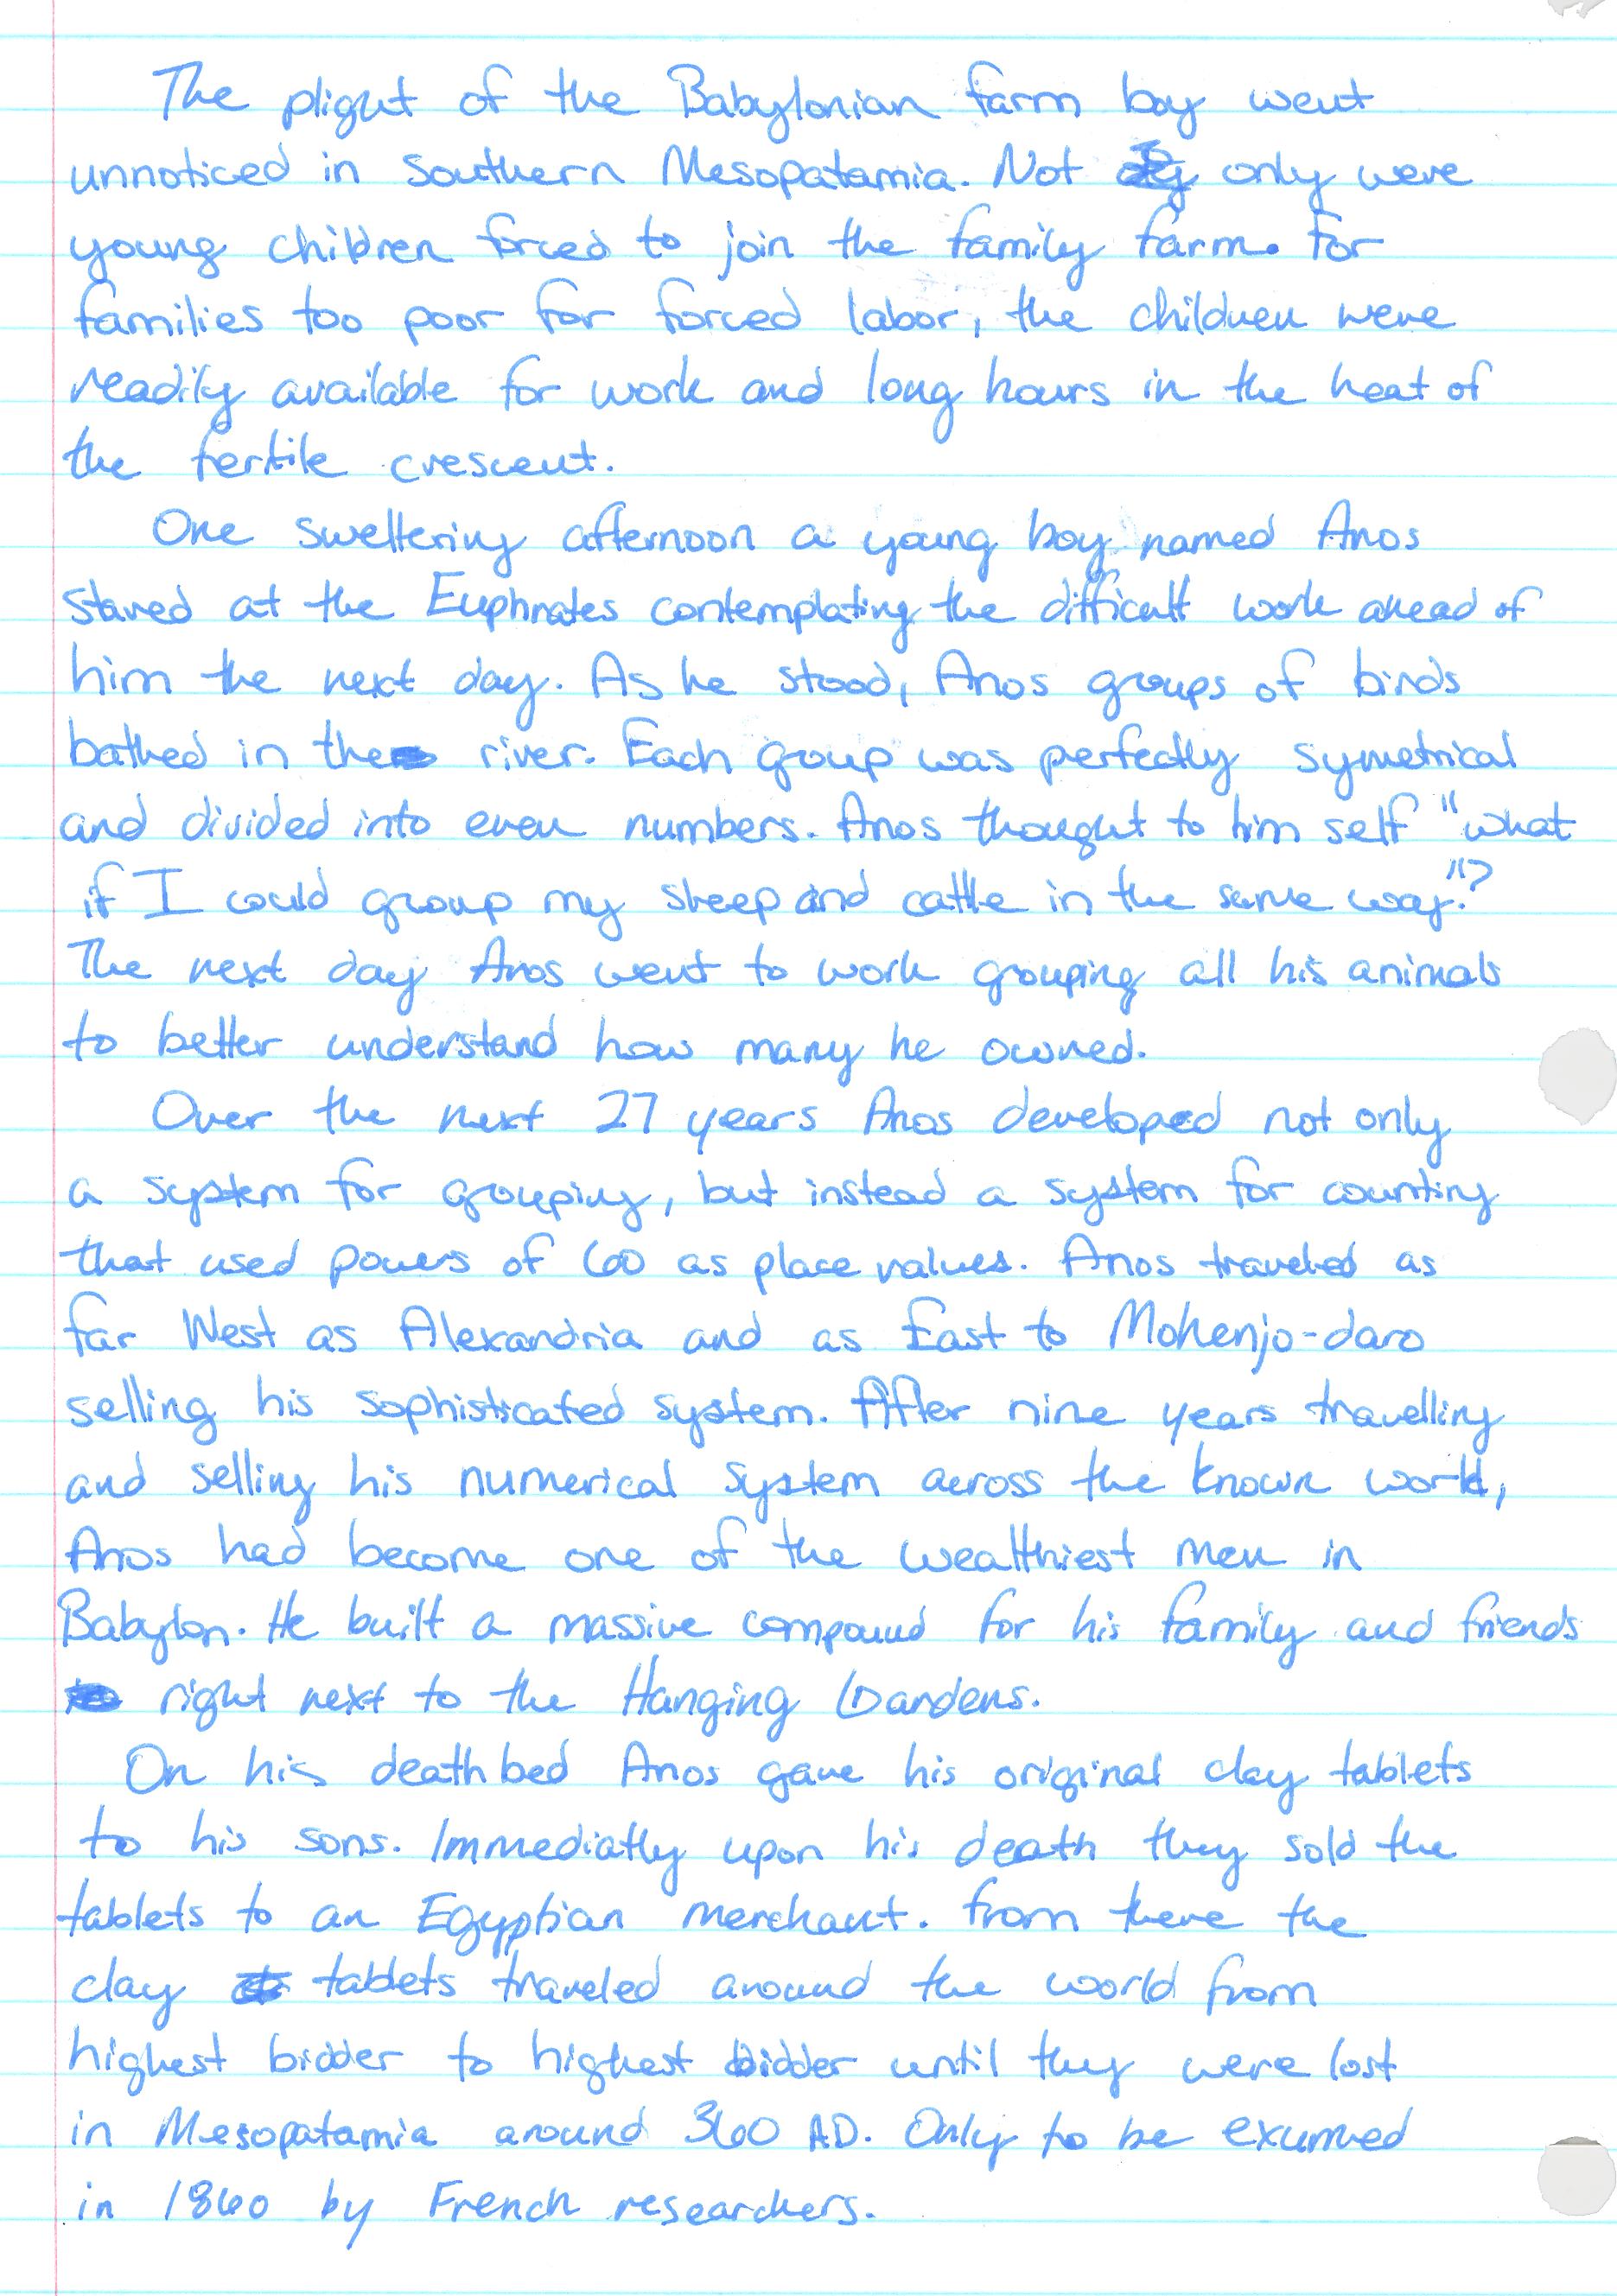 The plight of the Babylonian farm boy went
unnoticed in Southern Mesopatamia. Not only were
young children forced to join the family farm. For
families too poor for forced labor, the children were
readily available for work and long hours in the heat of
the fertile crescent.
One sweltering afternoon a young boy named Anos
stared at the Euphrates contemplating the difficult work ahead of
him the next day. As he stood, Anos groups of birds
bathed in the river. Each group was perfectly symetrical
and divided into even numbers. Anos thought to him self "what
if I could group my sheep and cattle in the same way."?
The next day Anos went to work grouping all his animals
to better understand how many he owned.
Over the next 27 years Anos developed not only
a system for grouping, but instead a system for counting
that used powers of 60 as place values. Anos traveled as
far West as Alexandria and as East to Mohenjo-daro
selling his sophisticated system. After nine years travelling
and selling his numerical system across the known world,
Anos had become one of the wealthiest men in
Babylon. He built a massive compound for his family and friends
right next to the Hanging Gardens.
On his death bed Anos gave his original clay tablets
to his sons. Immediatly upon his death they sold the
tablets to an Egyptian merchant. From there the
clay tablets traveled around the world from
highest bidder to highest bidder until they were lost
in Mesopatamia around 360 AD. Only to be exumed
in 1860 by French researchers.